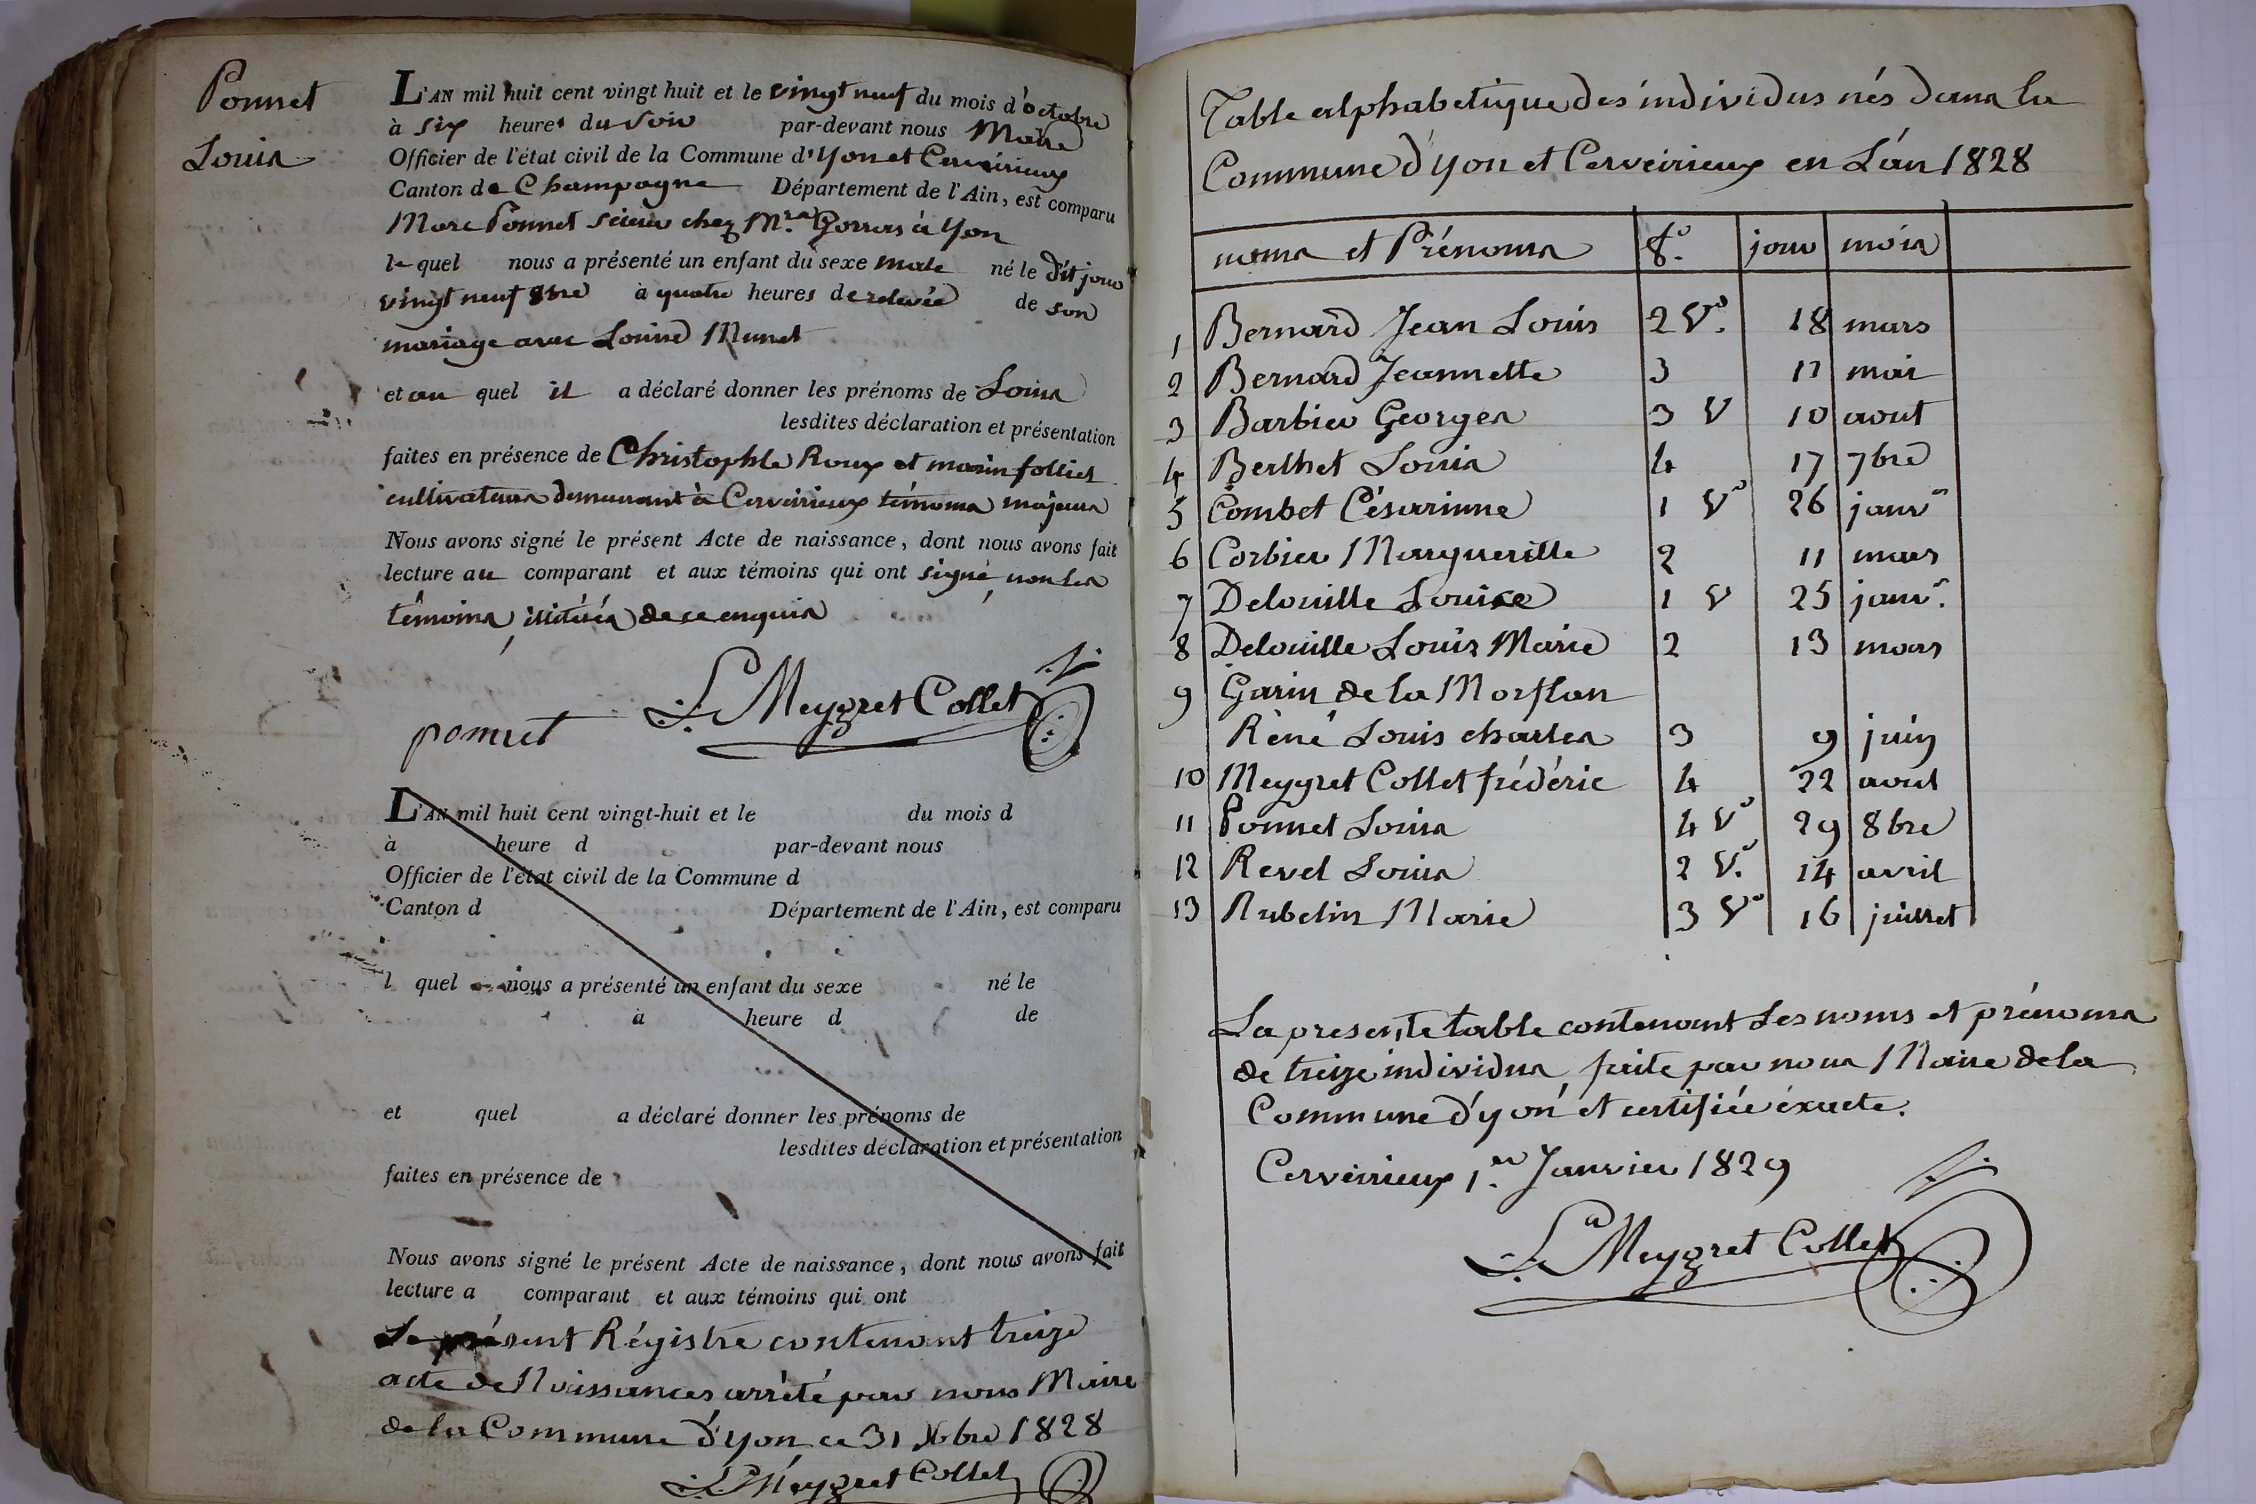 Ponnet
Louis
L'AN mil huit cent vingt huit et le vingt neuf du mois d'octobre
à six heures du soir par-devant nous Maire
Officier de l'état civil de la Commune d'yon et Cerveirieux
Canton de Champagne Département de l'Ain, est comparu
Marc Ponnet scieur chez Mr. Gorras à yon
le quel nous a présenté un enfant du sexe male né le dit jour
vingt neuf 8bre à quatre heures de relevée de son
mariage avec Louise Munet
et au quel il a déclaré donner les prénoms de Louis
lesdites déclaration et présentation
faites en présence de Christophle Roux et marin folliet
cultivateurs demeurant à Cerveirieux témoins majeurs
Nous avons signé le présent Acte de naissance, dont nous avons fait
lecture au comparant et aux témoins qui ont signé, non les
témoins, illitérés de ce enquis
ponnet Le Meygret Collet
L'AN mil huit cent vingt-huit et le du mois d
à heure d par-devant nous
Officier de l'état civil de la Commune d
Canton d Département de l'Ain, est comparu
l quel nous a présenté un enfant du sexe né le
à heure d de
et quel a déclaré donner les prénoms de
lesdites déclaration et présentation
faites en présence de
Nous avons signé le présent Acte de naissance, dont nous avons fait
lecture a comparant et aux témoins qui ont
Le présent Régistre contenant treize
acte de Naissances arrêté par nous Maire
de la Commune d'yon ce 31 Xbre 1828
Le Meygret Collet
Table alphabetique des individus nés dans la
Commune d'yon et Cerveirieux en L'an 1828
noms et Prénoms fo. jour mois
1 Bernard Jean Louis 2 Vo. 18 mars
2 Bernard Jeannette 3 17 mai
3 Barbier Georges 3 V 10 aout
4 Berthet Louis 4 17 7bre
5 Combet Césarinne 1 Vo 26 janvr
6 Corbier Margueritte 2 11 mars
7 Delouille Louise 1 V 25 janvr.
8 Delouille Louis Marie 2 13 mars
9 Garin de la Morflan
René Louis charles 3 9 juin
10 Meygret Collet frédéric 4 22 aout
11 Ponnet Louis 4 Vo 29 8bre
12 Revel Louis 2 Vo. 14 avril
13 Rubelin Marie 3 Vo 16 juillet
La presente table contenant Les noms et prénoms
de treize individus, faite par nous Maire de la
Commune d'yon et certifiée éxacte.
Cerveirieux 1er. Janvier 1829
Le Meygret Collet